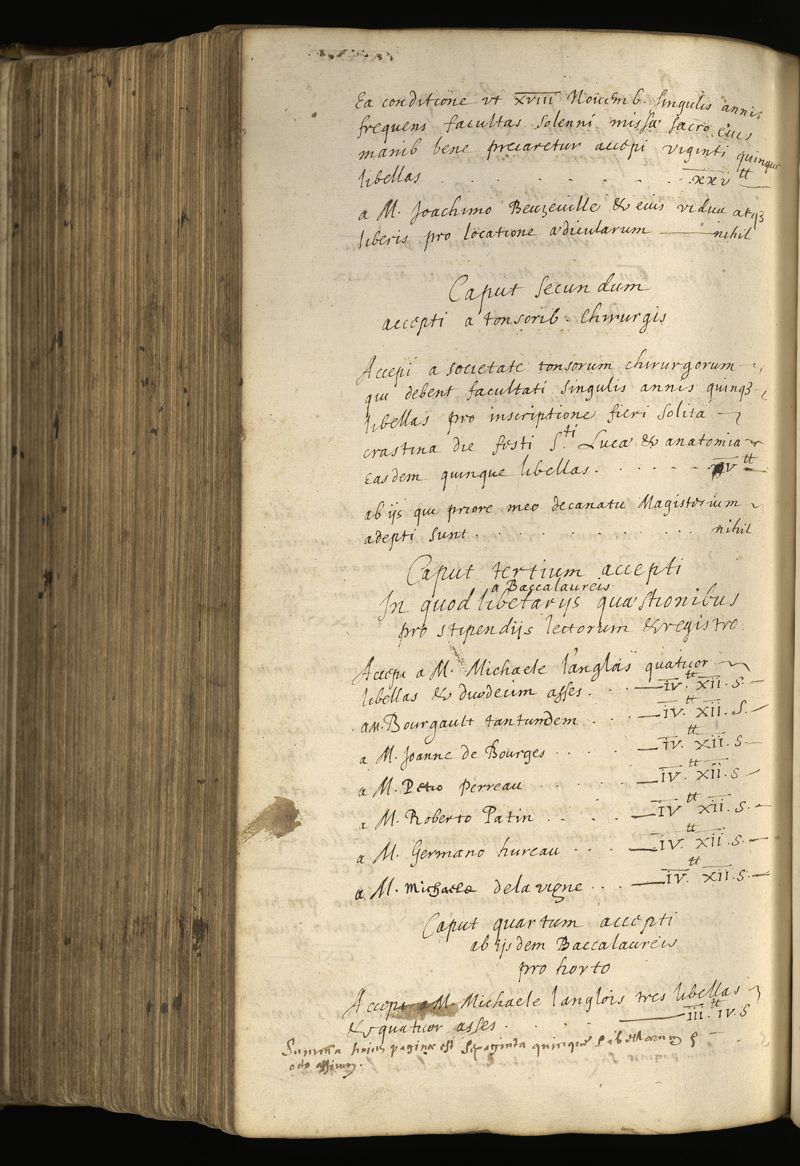 Ea conditione vt XVIII Nouemb. singulis annis
frequens facultas solenni missæ sacro eius
manib bene precaretur accepi viginti quinque
libellas . . . . . . . XXV tt
a M. Joachimo Beuzeuille & eius vidua atqз
liberis pro locatione ædicularum nihil
Caput secundum
accepti a tonsorib. Chirurgis
Accepi a societate tonsorum chirurgorum
qui debent facultati singulis annis quinqз
libellas pro inscriptione fieri solita
crastina die festi S.ti Lucæ & anatomia
easdem quinque libellas. . . . . . V tt
ab ijs qui priore meo decanatu Magisterium
adepti sunt . . . . . . . . . . nihil
Caput tertium accepti
a Baccalaureis
In quodlibetarijs quæstionibus
pro stipendijs lectorum & registro
Accepi a M. Michaele langlois quatuor
libellas & duodecim asses. . . IV. tt XII. S.
a M. Bourgault tantundem . . . IV. tt XII. S.
a M. Joanne de Bourges . . . . IV. tt XII. S
a M. Petro perreau . . . . . IV. tt XII. S
a M. Roberto Patin . . . . IV tt XII. S.
a M. Germano hureau . . . . IV. tt XII. S.
a M. Michaele delavigne . . . IV. tt XII. S.
Caput quartum accepti
ab ijsdem Baccalaureis
pro horto
Accepi a M. Michaele langlois tres libellas
& quatuor asses . . . . . III. tt IV. S
Summa huius paginæ est septaginta quinque libellarum &
octo assium.